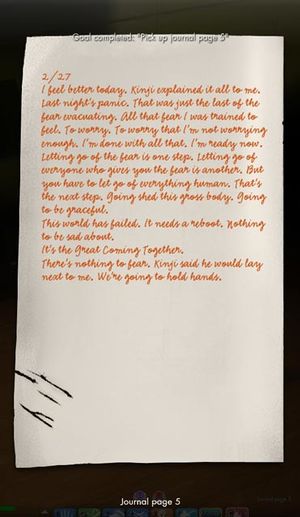 Goal completed: "Pick up journal page 5"
2/27
I feel better today. Kinji explained it all to me.
Last night's panic. That was just the last of the
fear evacuating. All that fear I was trained to
feel. To worry. To worry that I'm not worrying
enough. I'm done with all that. I'm ready now.
Letting go of the fear is one step. Letting go of
everyone who gives you the fear is another. But
you have to let go of everything human. That's
the next step. Going shed this gross body. Going
to be graceful.
This world has failed. It needs a reboot. Nothing
to be sad about.
It's the Great Coming Together.
There's nothing to fear. Kinji said he would lay
next to me. We're going to hold hands.
Journal page 5
Journal page 5